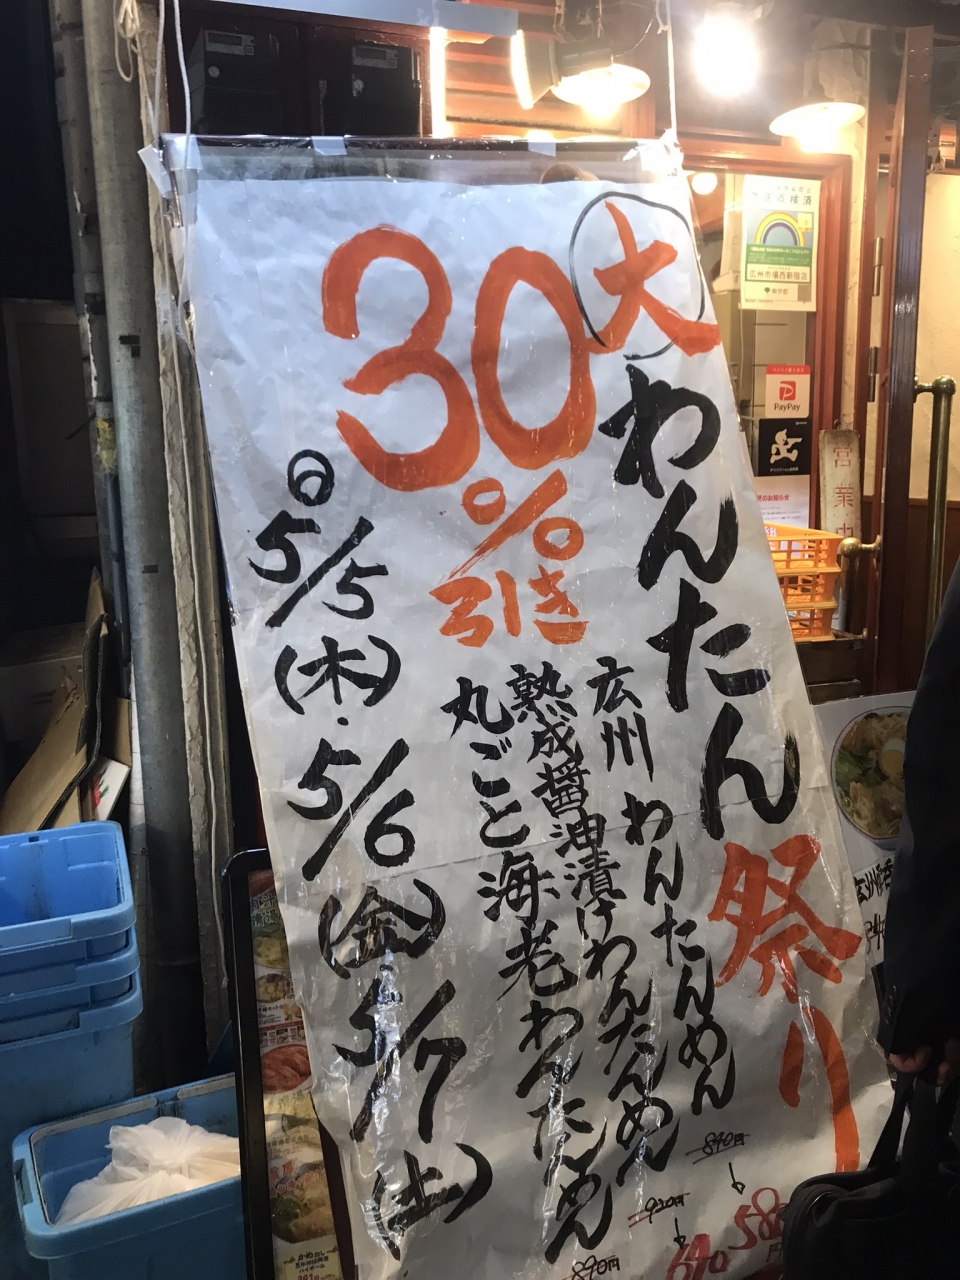 大わんたん祭り
30%引き
広州わんたんめん
890円
580円
熟成醤油漬けわんたんめん
920円
640
丸ごと海老わんたんめん
890円
5/5(木)・5/6(金)・5/7(土)
点検済
広州市場西新宿店
PayPay
営業中